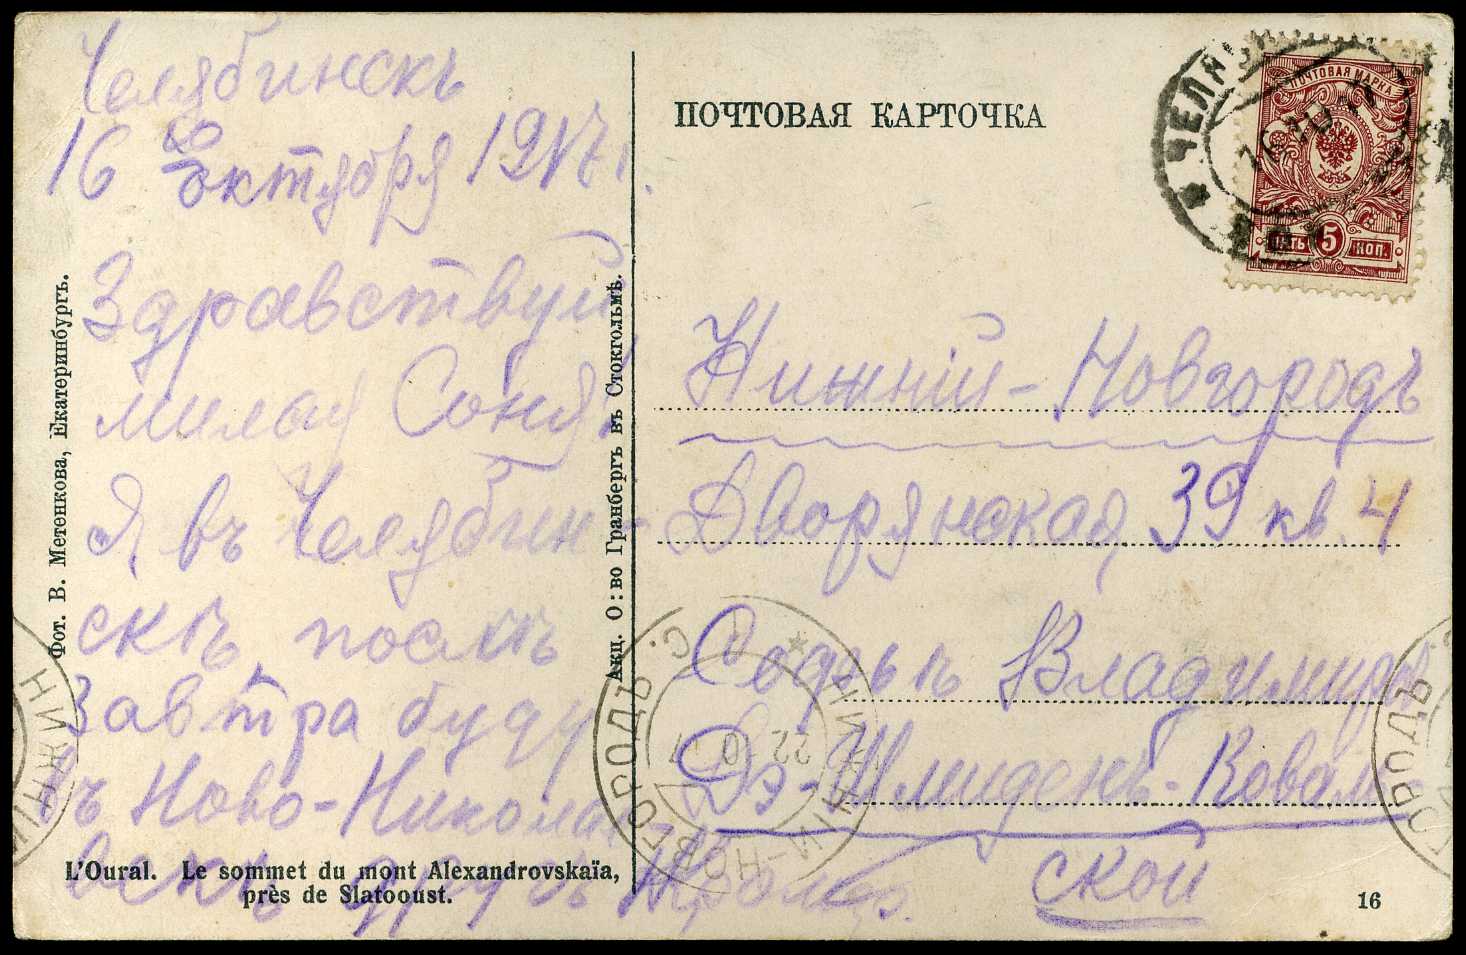 Челябинскъ
16 октября 1917 г.
Здравствуй
милая Соня!
Я въ Челябин-
скѣ, послѣ
завтра буду
въ Ново-Никола
евскѣ
Фот. В. Метенкова, Екатеринбургъ.
Акц. О:во Гранбергъ въ Стокгольмѣ.
L'Oural. Le sommet du mont Alexandrovskaïa,
près de Slatooust.
ПОЧТОВАЯ КАРТОЧКА
ПОЧТОВАЯ МАРКА
ПЯТЬ 5 КОП.
Нижній-Новгородъ
Дворянская, 39 кв. 4
Софьѣ Владимиров
Дэ-Шмиденъ-Коваль
ской
НИЖНІЙ-НОВГОРОДЪ. С.
22 10 17
16